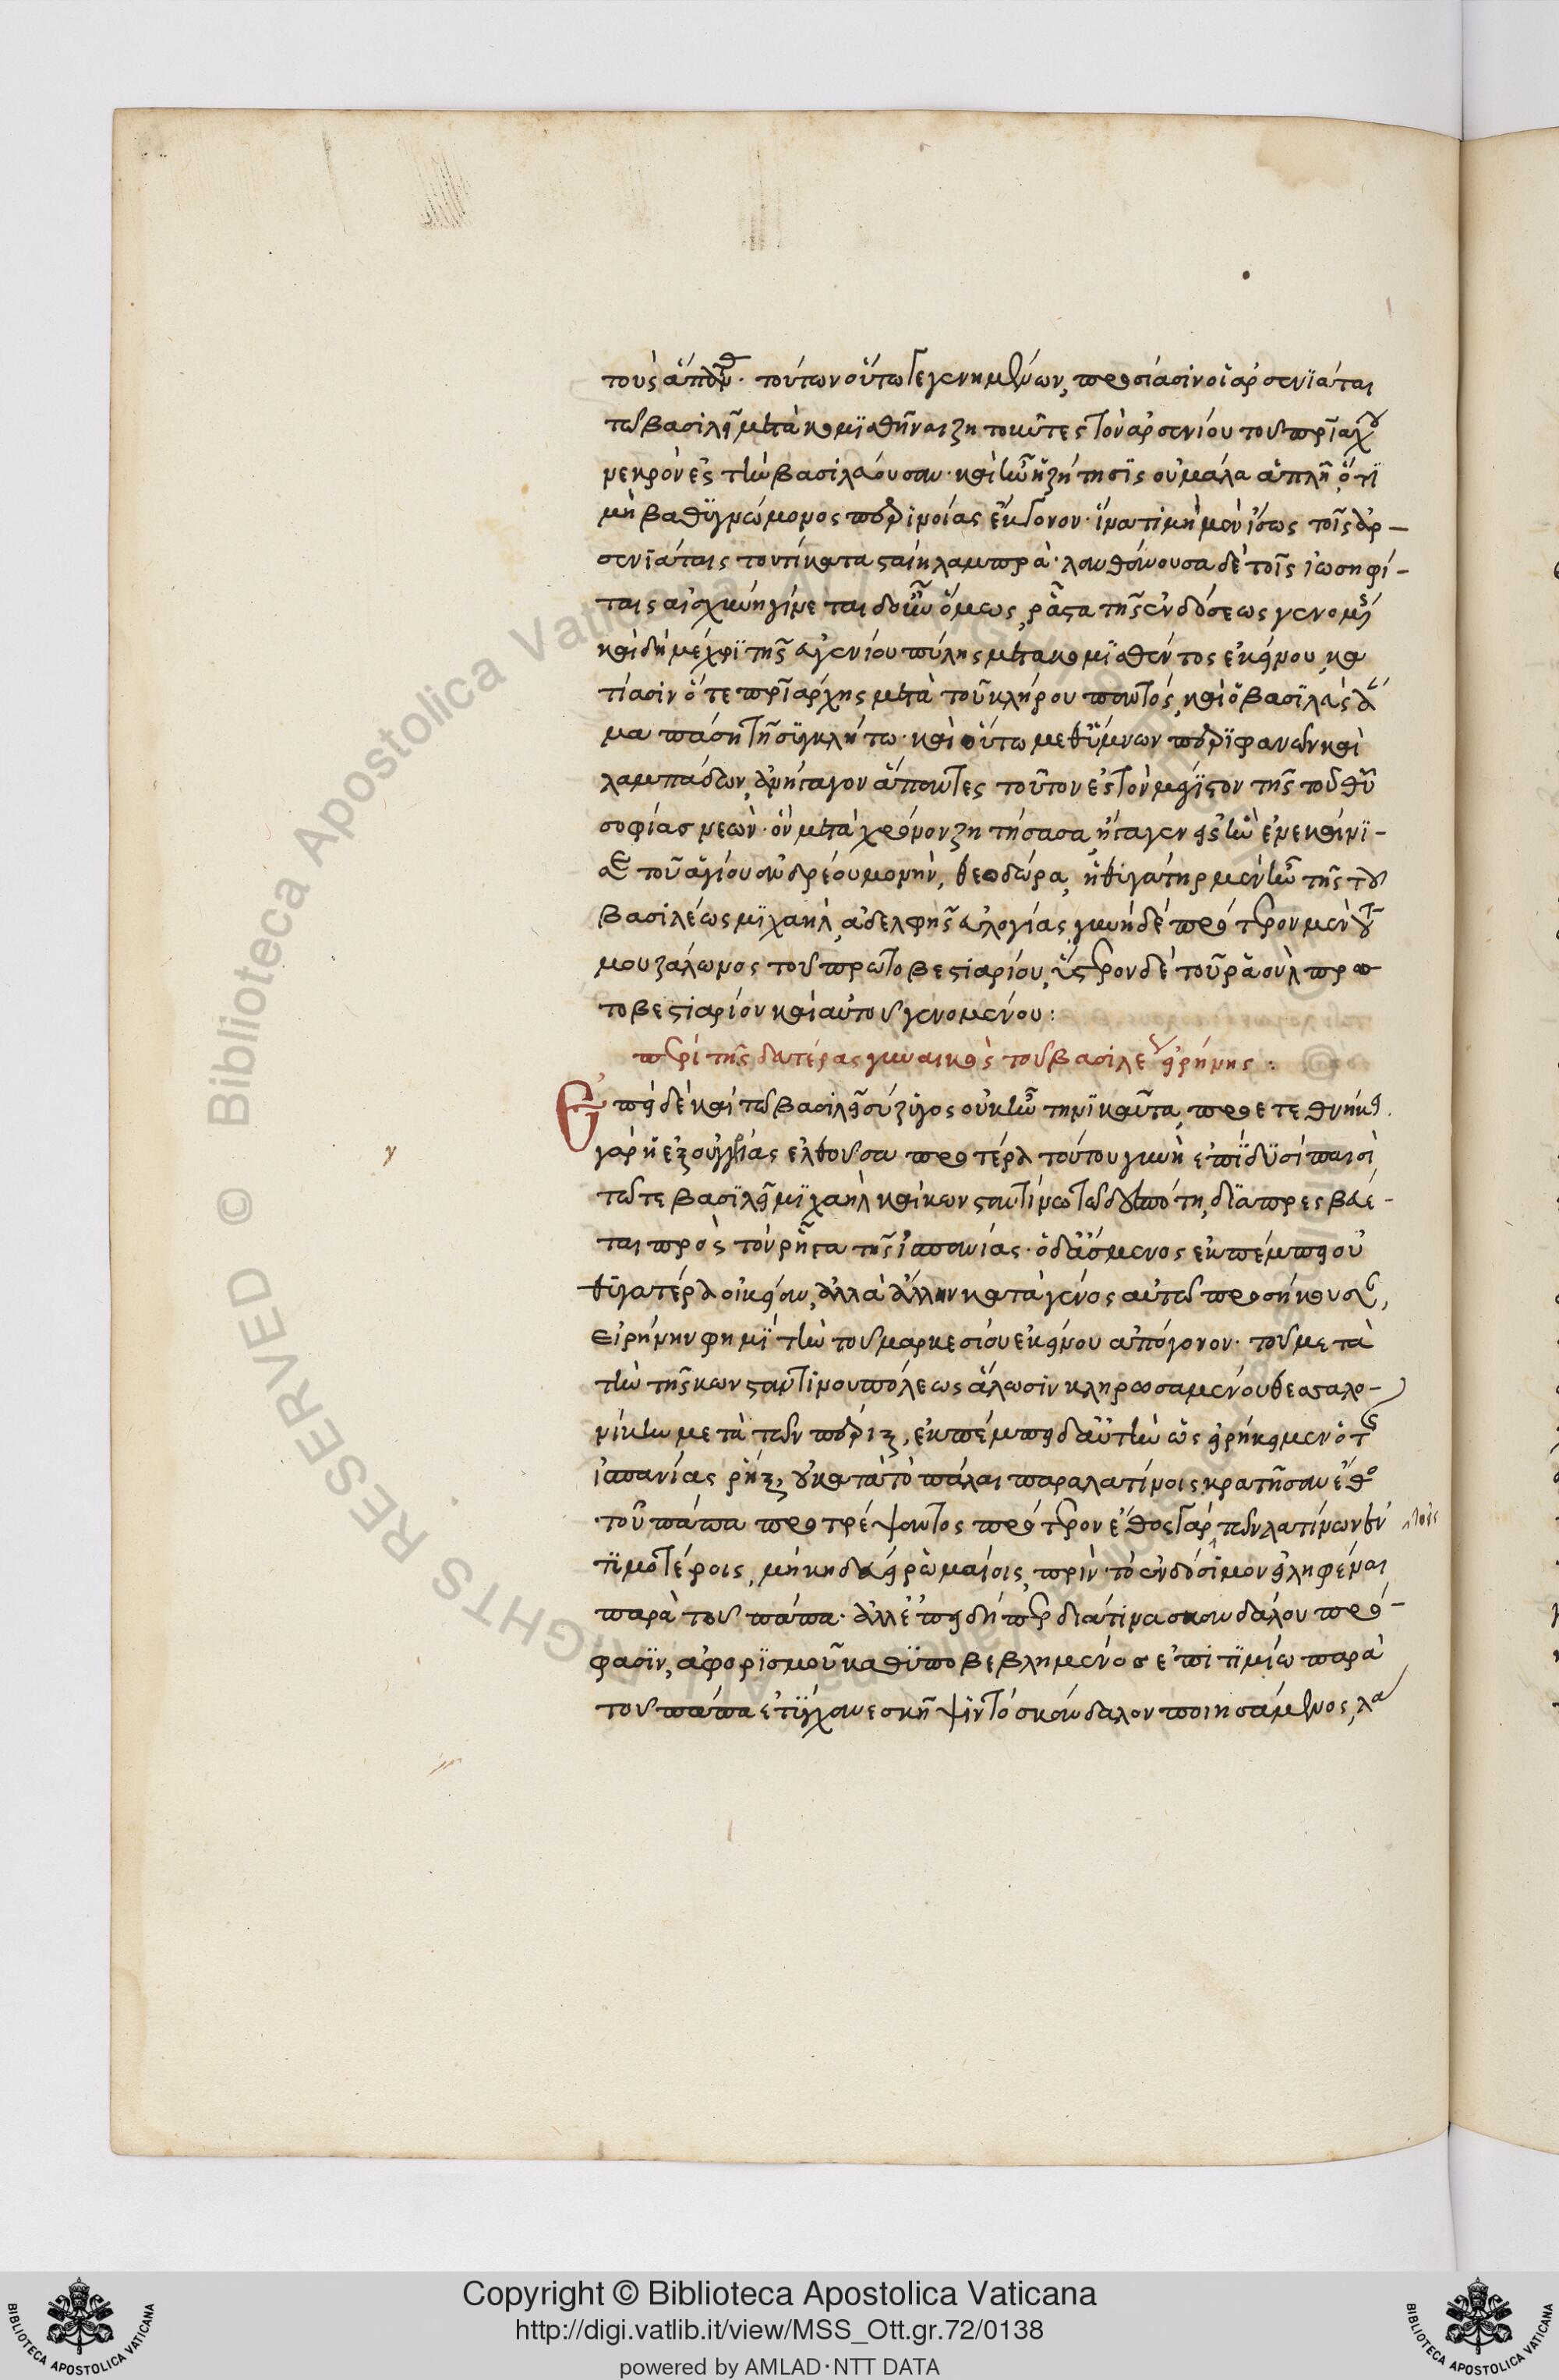 τοὺς ἅπαντας. τούτων οὕτω γεγενημένων, προσίασιν οἱ ἀρσενιᾶται
τῷ βασιλεῖ μετακομισθῆναι ζητοῦντες τὸν ἀρσενίου τοῦ πριάρχου
νεκρὸν ἐς τὴν βασιλεύουσαν. καὶ ἦν ἡ ζήτησις οὐ μάλα ἁπλῆ, ὅτι
μὴ βαθυγνώμονος περινοίας ἔκγονον. ἵνα τιμὴ μὲν ἴσως τοῖς ἀρ-
σενιάταις τουτὶ καταςαίη λαμπρὰ. λανθάνουσα δὲ τοῖς ἰωσηφί-
ταις αἰσχύνη γίνεται δ' οὖν ὅμως, ῥᾷςα τῆς ἐνδόσεως γενομένης
καὶ δὴ μέχρι τῆς εὐγενίου πύλης μετακομισθέντος ἐκείνου, κα
τίασιν ὅ τε πριάρχης μετὰ τοῦ κλήρου παντός, καὶ ὁ βασιλεὺς ἅ
μα πάσῃ τῇ συγκλήτω. καὶ οὕτω μεθ' ὕμνων περιφανῶν καὶ
λαμπάδων, ἀνήγαγον ἅπαντες τοῦτον ἐς τὸν μέγιςον τῆς τοῦ θυ
σοφίας νεών. ὃν μετὰ χρόνον ζητήσασα, ἤγαγεν εἰς ἣν ἐνεκαίνι-
σε τοῦ ἁγίου ἀνδρέου μονήν, θεοδώρα, ἡ θυγάτηρ μὲν ἦν τῆς τοῦ
βασιλέως μιχαὴλ, ἀδελφῆς εὐλογίας, γυνὴ δὲ πρότερον μὲν τοῦ
μουζάλωνος τοῦ πρωτοβεςιαρίου, ὕςερον δὲ τοῦ ῥαοὺλ πρω
τοβεςιαρίου καὶ αὐτοῦ γενομένου:
περὶ τῆς δευτέρας γυναικὸς τοῦ βασιλέως εἰρήνης:
Ἐπεὶ δὲ καὶ τῷ βασιλεῖ σύζυγος οὐκ ἦν τηνικαῦτα, προετεθνήκει
γὰρ ἡ ἐξ οὐγγρίας ἐλθοῦσα προτέρα τούτου γυνὴ ἐπὶ δυσὶ παισὶ
τῷ τε βασιλεῖ μιχαὴλ καὶ κωνςαντίνω τῷ δεσπότη, διαπρεσβεύε-
ται πρὸς τὸν ῥῆγα τῆς ἱσπανίας. ὁ δ' ἀσμένως ἐκπέμπει οὐ
θυγατέρα οἰκείαν, ἀλλὰ ἄλλην κατὰ γένος αὐτῷ προσήκουσαν,
εἰρήνην φημὶ τὴν τοῦ μαρκεσίου ἐκείνου ἀπόγονον. τοῦ μετὰ
τὴν τῆς κωνςαντίνου πόλεως ἅλωσιν κληρωσαμένου θεσσαλο-
νίκην μετὰ τῶν πέριξ, ἐκπέμπει δ' αὐτὴν ὡς εἰρήκειμεν ὁ τῆς
ἱσπανίας ῥήξ, οὐ κατὰ τὸ πάλαι παρὰ λατίνοις κρατῆσαν ἔθος
τοῦ πάπα προτρέψαντος πρότερον ἔθος γὰρ τῶν λατίνων τοῖς ἐν
τιμοτέροις, μὴ κηδεύειν ῥωμαίοις, πρὶν τὸ ἐνδόσιμον εἰληφέναι
παρὰ τοῦ πάπα. ἀλλ' ἐπειδήπερ διά τινα σκανδάλου πρό-
φασιν, ἀφορισμοῦ καθυποβεβλημένος ἐπιτιμίω παρὰ
τοῦ πάπα ἐτύγχανε σκῆψιν τὸ σκάνδαλον ποιησάμενος, λα